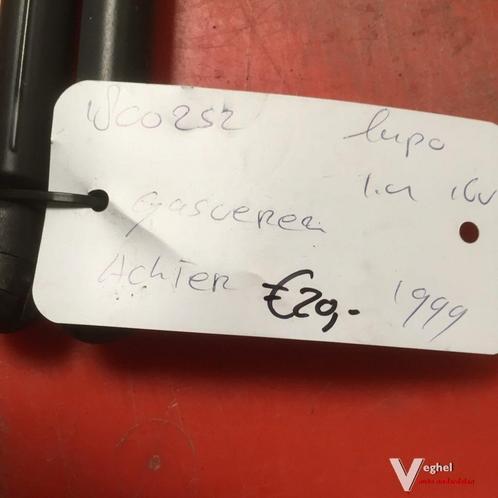 lupo
1.4 16V
gasveren
Achter €20,- 1999
Veghel